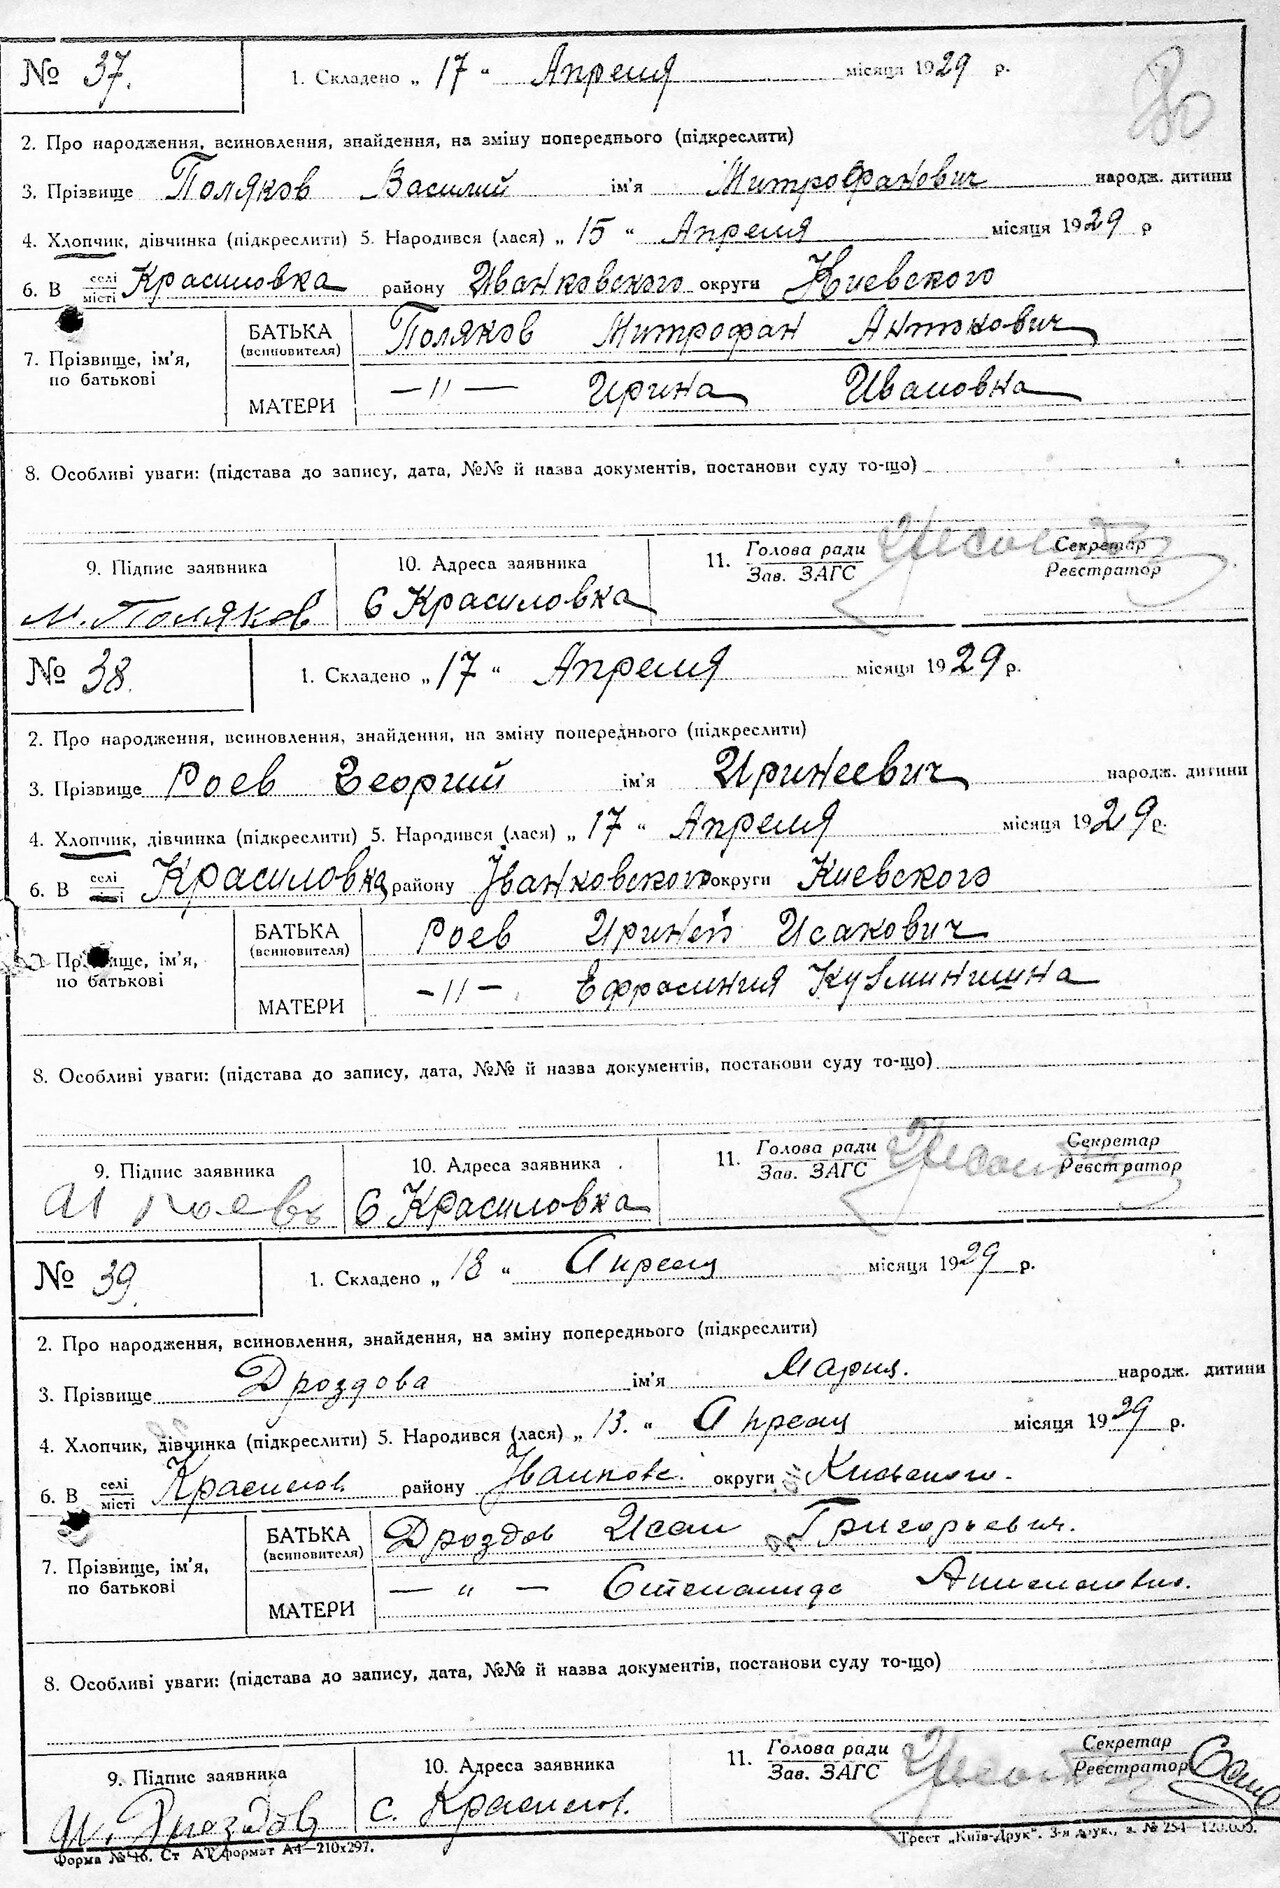 № 37. 1. Складено „ 17 “ Апреля місяця 1929 р.
2. Про народження, всиновлення, знайдення, на зміну попереднього (підкреслити)
3. Прізвище Поляков Василий ім'я Митрофанович народж. дитини
4. Хлопчик, дівчинка (підкреслити) 5. Народився (лася) „ 15 “ Апреля місяця 1929 р
6. В селі місті Красиловка району Иванковского округи Киевского
7. Прізвище, ім'я, по батькові
БАТЬКА (всиновителя) Поляков Митрофан Антонович
МАТЕРИ —〃— Ирина Ивановна
8. Особливі уваги: (підстава до запису, дата, №№ й назва документів, постанови суду то-що)
9. Підпис заявника 10. Адреса заявника 11. Голова ради Зав. ЗАГС Секретар Реєстратор
М. Поляков С Красиловка
№ 38. 1. Складено „ 17 “ Апреля місяця 1929 р.
2. Про народження, всиновлення, знайдення, на зміну попереднього (підкреслити)
3. Прізвище Роев Георгий ім'я Иринеевич народж. дитини
4. Хлопчик, дівчинка (підкреслити) 5. Народився (лася) „ 17 “ Апреля місяця 1929 р.
6. В селі місті Красиловка району Іванковского округи Киевского
7. Прізвище, ім'я, по батькові
БАТЬКА (всиновителя) Роев Ириней Исакович
МАТЕРИ —〃—. Ефросиния Кузминишна
8. Особливі уваги: (підстава до запису, дата, №№ й назва документів, постанови суду то-що)
9. Підпис заявника 10. Адреса заявника 11. Голова ради Зав. ЗАГС Секретар Реєстратор
И Роевъ С Красиловка
№ 39. 1. Складено „ 18 “ Апреля місяця 1929 р.
2. Про народження, всиновлення, знайдення, на зміну попереднього (підкреслити)
3. Прізвище Дроздова ім'я Мария. народж. дитини
4. Хлопчик, дівчинка (підкреслити) 5. Народився (лася) „ 13. “ Апреля місяця 1929 р.
6. В селі місті Красилов. району Іванков. округи Киевского.
7. Прізвище, ім'я, по батькові
БАТЬКА (всиновителя) Дроздов Исак Григорьевич.
МАТЕРИ — 〃 — Степанида
8. Особливі уваги: (підстава до запису, дата, №№ й назва документів, постанови суду то-що)
9. Підпис заявника 10. Адреса заявника 11. Голова ради Зав. ЗАГС Секретар Реєстратор
И. Дроздов с. Красилов.
Форма № 16. Ст АТ формат А4—210х297. Трест „Київ-Друк“. 3-я друк., з. № 254—120.000.